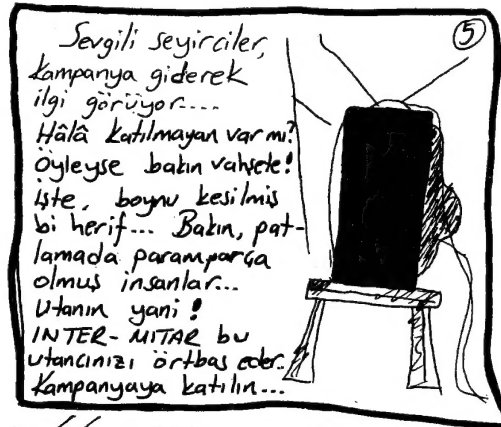 Sevgili seyirciler,
⑤
Kampanya giderek
ilgi görüyor....
Hâlâ katılmayan var mı?
Öyleyse bakın vahşete!
İşte, boynu kesilmiş
bi herif... Bakın, pat-
lamada paramparça
olmuş insanlar...
Utanın yani!
INTER-MITAR bu
utancınızı örtbas eder..
Kampanyaya katılın...